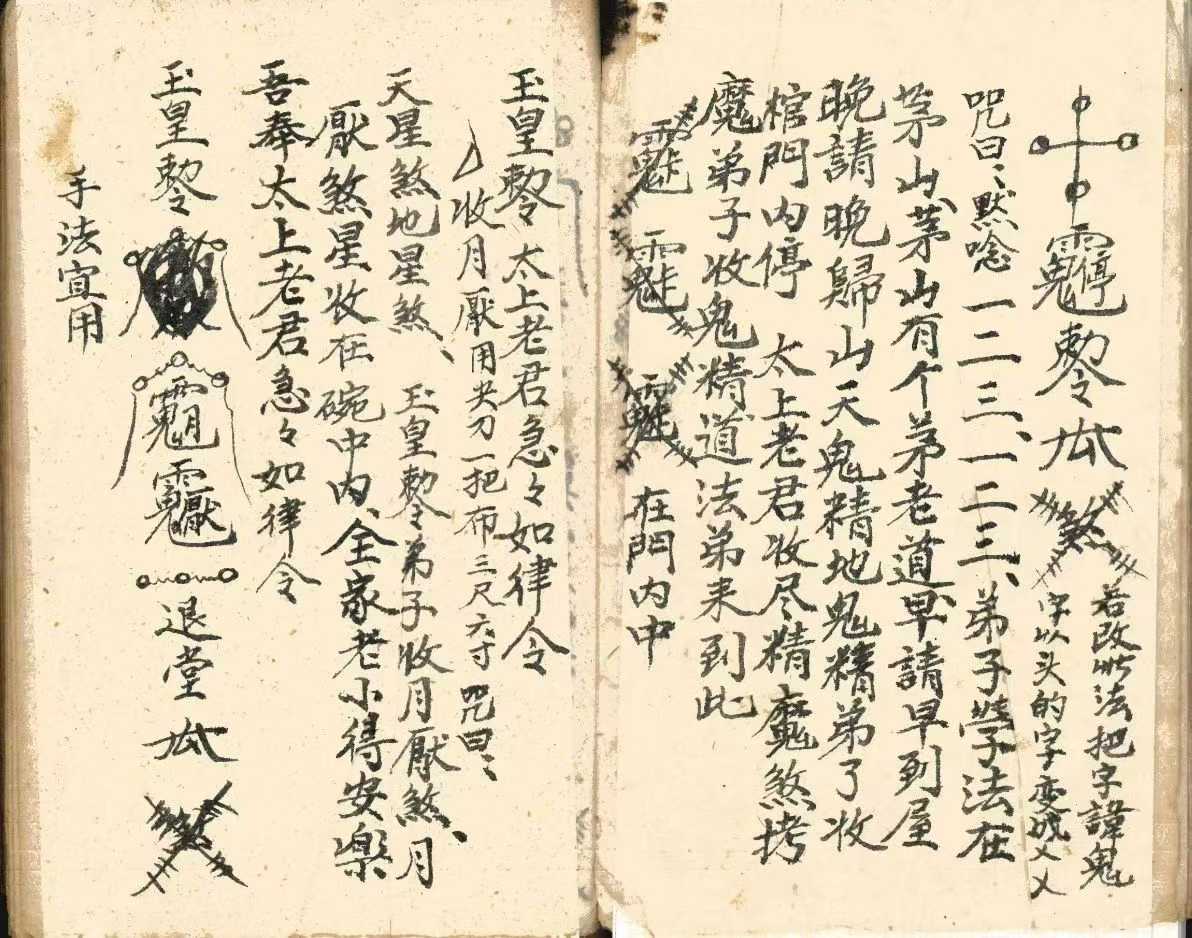 敕令
煞
若改此法把字諱鬼
字以头的字变成乂乂
咒曰、默唸一二三、一二三、弟子学法在
茅山、茅山有个茅老道、早請早到屋
晚請晚歸山天鬼精地鬼精弟子收
棺門内停 太上老君收尽精魔煞拷
魔弟子收鬼精道法弟来到此
在門内中
玉皇敕令太上老君急々如律令
收月厭用尖刀一把布三尺六寸 咒曰、
天星煞地星煞、玉皇敕令弟子收月厭煞、月
厭煞星收在碗中内、全家老小得安樂
吾奉太上老君急々如律令
玉皇敕令
退堂
手法宜用